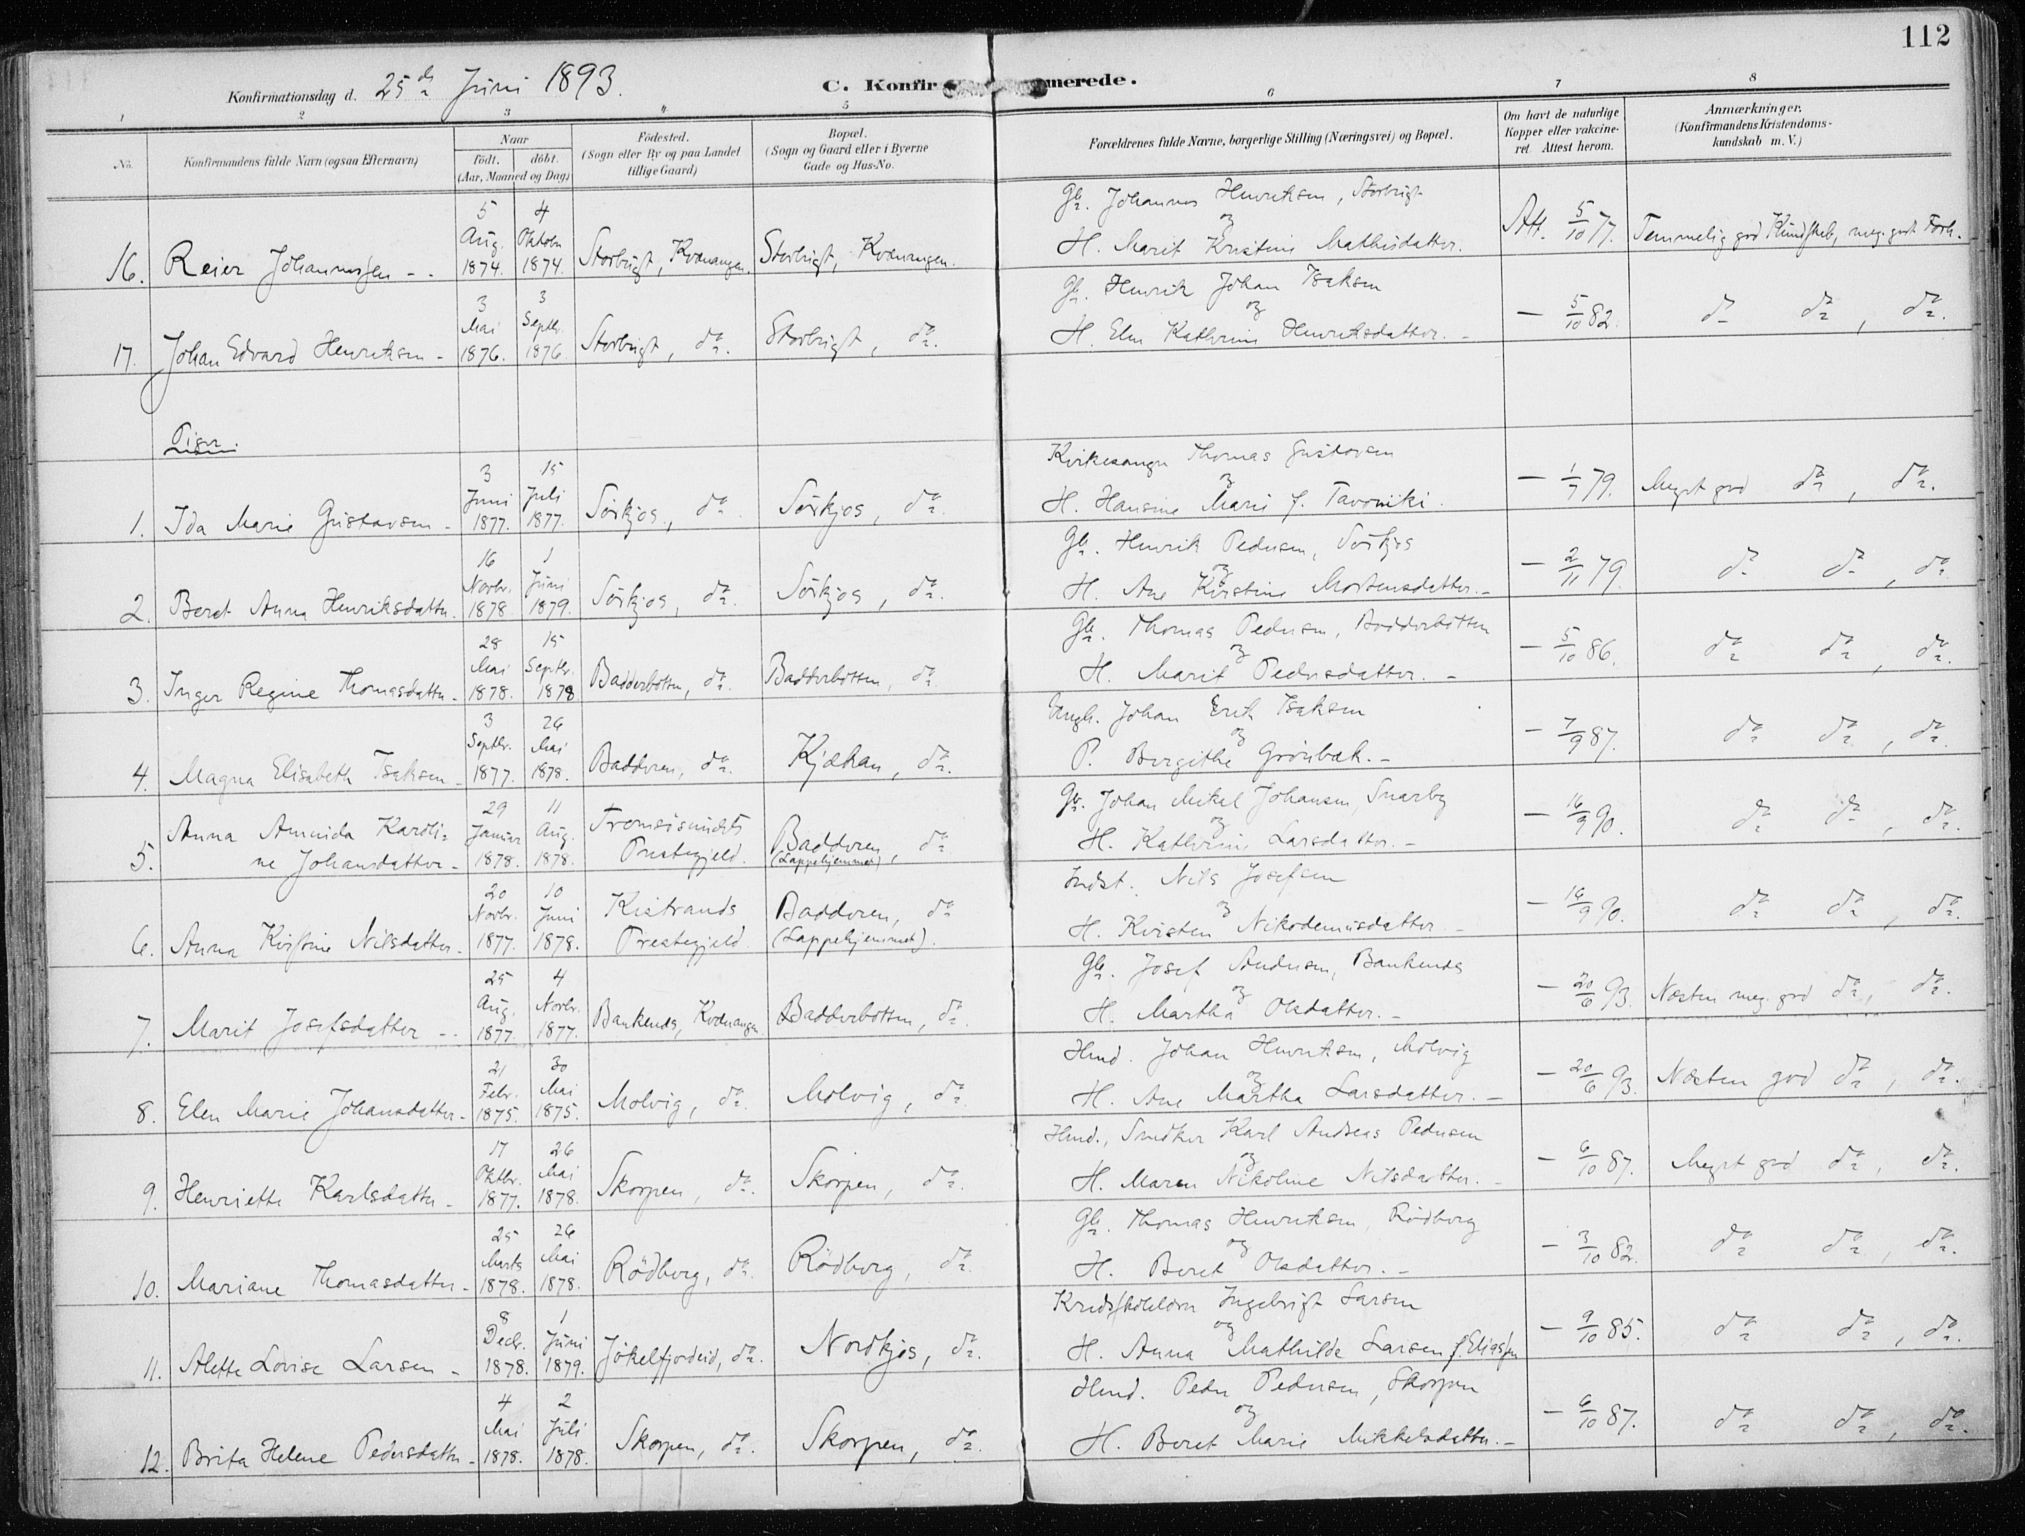 112
Konfirmationsdag d. 25de Juni 1893.
C. Konfirmerede.
1 2 3 4 5 6 7 8
No.
Konfirmandens fulde Navn (ogsaa Efternavn)
Naar
födt. döbt.
(Aar, Maaned og Dag)
Födested.
(Sogn eller By og paa Landet
tillige Gaard)
Bopæl.
(Sogn og Gaard eller i Byerne
Gade og Hus-No.
Forældrenes fulde Navne, borgerlige Stilling (Næringsvei) og Bopæl.
Om havt de naturlige
Kopper eller vakcine-
ret. Attest herom.
Anmærkninger.
(Konfirmandens Kristendoms-
kundskab m. V.)
16. Reier Johannesen - - 5 Aug. 1874. 4 Oktobr 1874. Storbugt, Kvænangen. Storbugt, Kvænangen.
Gb. Johannes Henriksen, Storbugt
og
H. Marit Kristine Mathisdatter.
Att. 5/10 77. Temmelig god Kundskab, meg. godt Forh.
17. Johan Edvard Henriksen - 3 Mai 1876. 3 Septbr. 1876. Storbugt, do. Storbugt, do.
Gb. Henrik Johan Isaksen
og
H. Elen Kathrine Henriksdatter. -
- 5/10 82. do do, do.
Piger.
1. Ida Marie Gustavsen - 3 Juni 1877. 15 Juli 1877. Sörkjos, do Sörkjos, do.
Kirkesanger Thomas Gustavsen
og
H. Hansine Marie f. Tavoniki.
- 1/7 79. Meget god do, do.
2. Beret Anna Henriksdatter. 16 Novbr. 1878. 1 Juni 1879. Sörkjos, do. Sörkjos, do.
Gb. Henrik Pedersen, Sörkjos
og
H. Ane Kirstine Mortensdatter. -
- 2/11 79. do do, do
3. Inger Regine Thomasdatter - 28 Mai 1878. 15 Septbr. 1878 Badderbotten, do. Badderbotten, do.
Gb. Thomas Pedersen, Badderbotten
og
H. Marit Pedersdatter. -
- 5/10 86. do do, do.
4. Magna Elisabeth Isaksen - 3 Septbr. 1877. 26 Mai 1878. Badderen, do. Kjækan, do.
Ungk. Johan Erik Isaksen
og
P. Bergithe Grönbæk. -
- 7/9 87. do do, do.
5. Anna Amunda Karoli=
ne Johansdatter - 29 Januar 1878. 11 Aug. 1878. Tromsösundets
Prestegjeld. Badderen, do.
(Lappehjemmet)
Gb. Johan Mikal Johansen, Snarby
og
H. Kathrine Larsdatter. -
- 16/9 90. do do, do.
6. Anna Kirstine Nilsdatter. 20 Novbr. 1877. 10 Juni 1878. Kistrands
Prestegjeld. Badderen, do
(Lappehjemmet).
Indst. Nils Josefsen
og
H. Kirsten Nikodemusdatter. -
- 16/9 90. do do, do.
7. Marit Josefsdatter - - 25 Aug. 1877. 4 Novbr. 1877. Bankenes, Kvænangen Badderbotten, do.
Gb. Josef Andersen, Bankenes
og
H. Martha Olsdatter. -
- 20/6 93. Næsten meg. god do, do.
8. Elen Marie Johansdatter - 21 Febr. 1875. 30 Mai 1875. Molvig, do. Molvig, do.
Hmd. Johan Henriksen, Molvig
og
H. Ane Martha Larsdatter. -
- 20/6 93. Næsten god do, do.
9. Henriette Karlsdatter - 17 Oktbr. 1877. 26 Mai 1878. Skorpen, do. Skorpen, do.
Hmd., Snedker Karl Andreas Pedersen
og
H. Maren Nikoline Nilsdatter. -
- 6/10 87. Meget god do, do.
10. Mariane Thomasdatter - 25 Marts 1878. 26 Mai 1878. Rödberg, do. Rödberg, do.
Gb. Thomas Henriksen, Rödberg
og
H. Beret Olsdatter. -
- 3/10 82. do do, do.
11. Alette Lovise Larsen - 8 Decbr. 1878. 1 Juni 1879. Jökelfjordeid, do. Nordkjos, do.
Kredsskolelærer Ingebrigt Larsen
og
H. Anna Mathilde Larsen f. Eliassen
- 9/10 85. do do, do.
12. Brita Helene Pedersdatter - 4 Mai 1878. 2 Juli 1878. Skorpen, do. Skorpen, do.
Hmd. Peder Pedersen, Skorpen
og
H. Beret Marie Mikkelsdatter. -
- 6/10 87. do do, do.